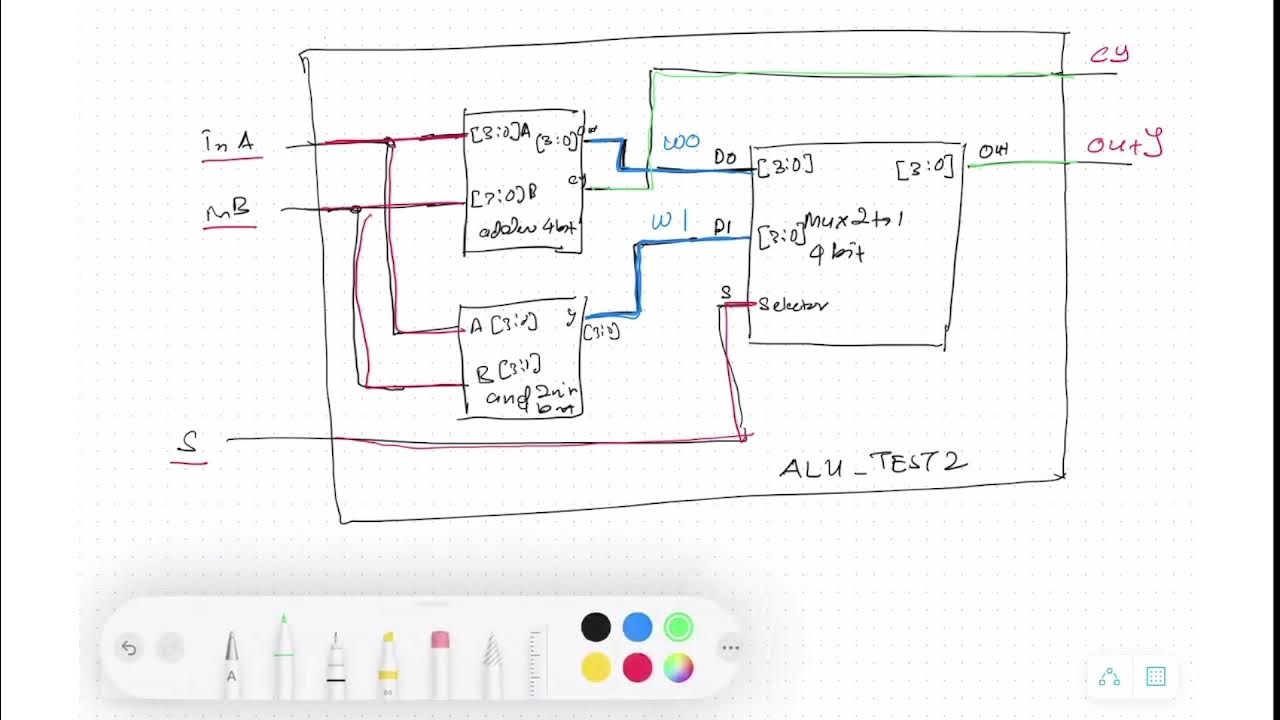 CY
InA
[3:0]A
[3:0]
W0
D0
[3:0]
[3:0]
Out
OutY
CY
InB
[3:0]B
adder 4bit
W1
D1
[3:0]
Mux2to1
4bit
S
Selector
A [3:0]
Y
[3:0]
B [3:0]
and 2in
S
ALU_TEST2
A
80